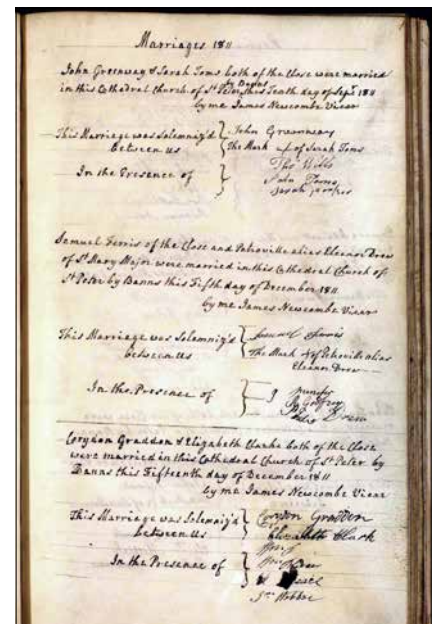 Marriages 1811
John Greenway & Sarah Toms both of the Close were married
by Banns
in this Cathedral church of St Peter this Tenth day of Sepr 1811
by me James Newcombe Vicar
This Marriage was Solemniz'd John Greenway
between us The Mark of Sarah Toms
In the Presence of
John Toms
Samuel Ferris of the Close and Petroville alias Eleanor Drew
of St Mary Major were married in this Cathedral Church of
St Peter by Banns this Fifth day of December 1811
by me James Newcombe Vicar
This Marriage was Solemniz'd Samuel Ferris
between us The Mark of Petroville alias
Eleanor Drew
In the Presence of
Godfrey
Drew
Corydon Graddon & Elizabeth Clarke both of the Close
were married in this Cathedral Church of St Peter by
Banns this Fifteenth day of December 1811
by me James Newcombe Vicar
This Marriage was Solemniz'd Corydon Gradden
between us Elizabeth Clark
In the Presence of